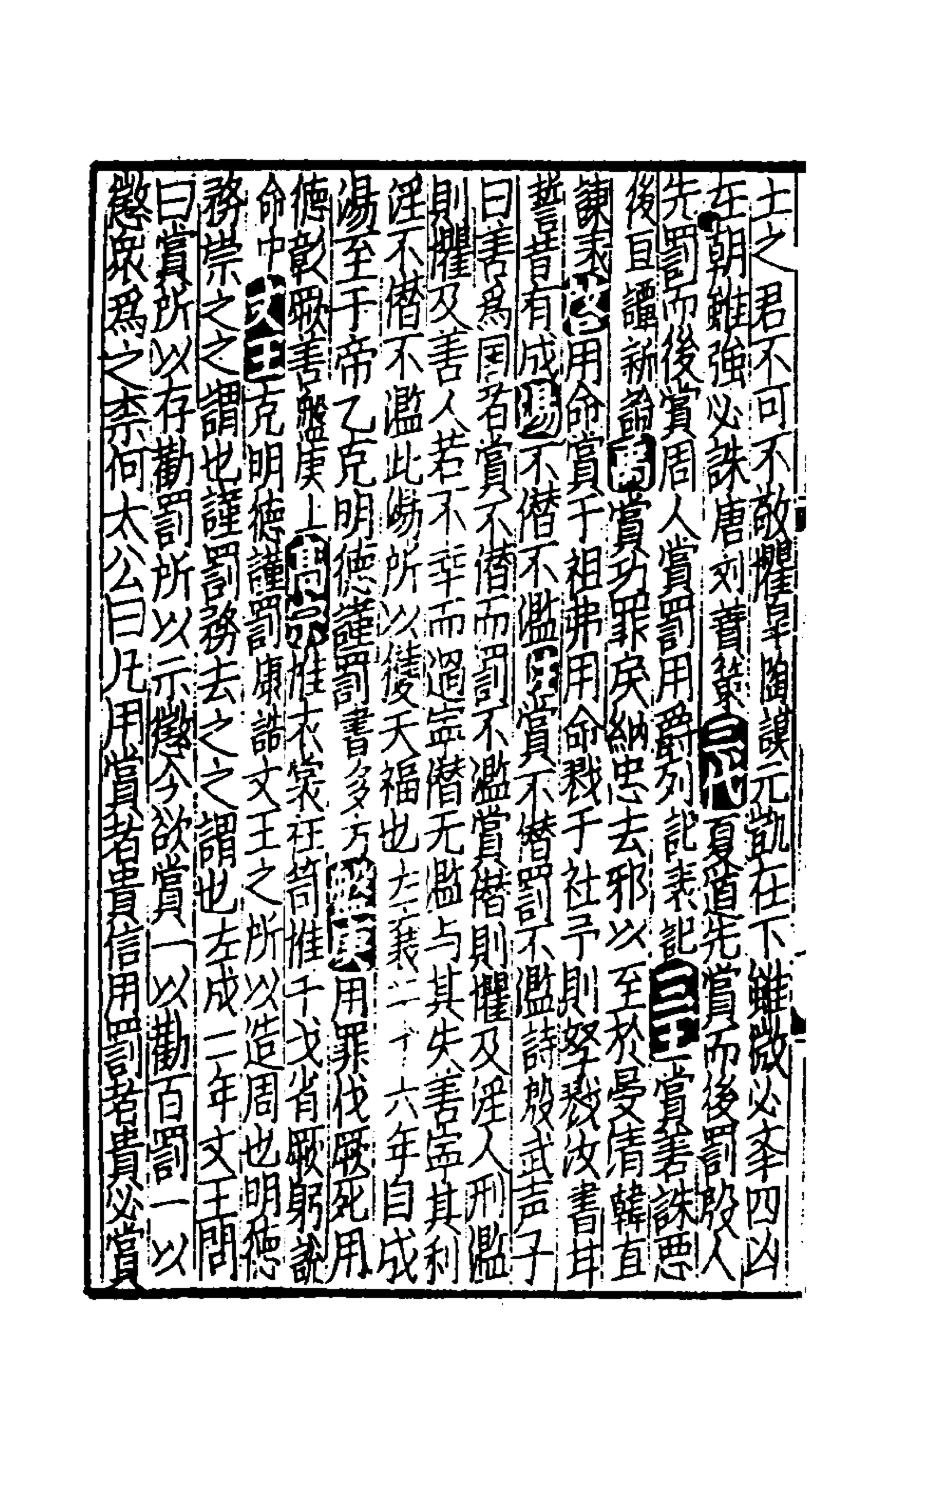 士之君不可不敬懼皐陶謨元凱在下雖微必夆四凶
在朝雖強必誅唐刘蕡策三代夏道先賞而後罰殷人
先罰而後賞周人賞罰用爵列記表記三王賞善誅悪
後且譚新論禹賞功罪戾納忠去邪以至於晏清韓直
諌表啓用命賞于祖弗用命戮于社予則孥戮汝書甘
誓昔有成湯不僣不濫任賞不僣罰不濫詩殷武声子
曰善爲国者賞不僣而罰不濫賞僣則懼及淫人刑濫
則懼及善人若不幸而過寕僣无濫与其失善寕其利
淫不僣不濫此湯所以獲天福也左襄二十六年自成
湯至于帝乙克明徳謹罰書多方盤庚用罪伐厥死用
徳彰厥善盤庚上髙宗惟衣裳在笥惟干戈省厥躬說
命中文王克明徳謹罰康誥文王之所以造周也明徳
務崇之之謂也謹罰務去之之謂也左成二年文王問
曰賞所以存勸罰所以示懲今欲賞一以勸百罰一以
懲衆爲之柰何太公曰凡用賞者貴信用罰者貴必賞